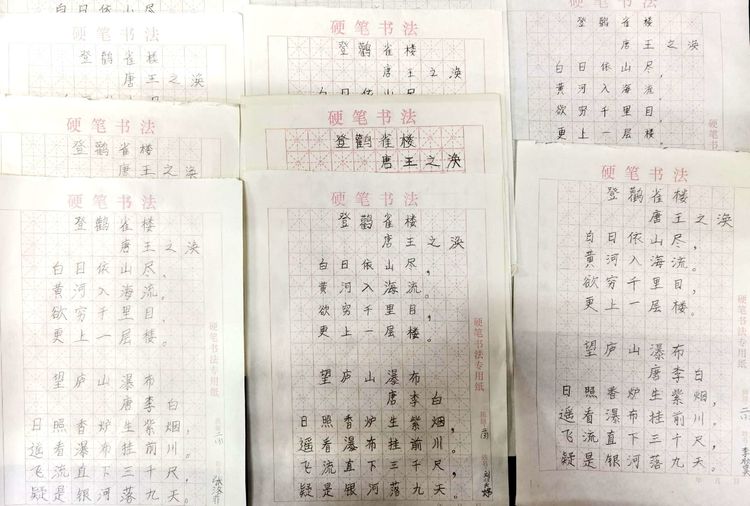 白日依山尽
硬笔书法
登鹳雀楼
唐王之涣
硬笔书法
登鹳雀楼
唐王之涣
白日依山尽
登鹳雀楼
唐王之涣
白日依山尽，
黄河入海流。
欲穷千里目，
更上一层楼。
硬笔书法
登鹳雀楼
唐王之涣
硬笔书法
登鹳雀楼
唐王之涣
硬笔书法
登鹳雀楼
唐王之涣
白日依山尽，
黄河入海流，
欲穷千里目，
更上一层楼。
望庐山瀑布
唐李白
日照香炉生紫烟，
遥看瀑布挂前川。
飞流直下三千尺，
疑是银河落九天。
硬笔书法专用纸
硬笔书法
登鹳雀楼
唐王之涣
白日依山尽，
黄河入海流。
欲穷千里目，
更上一层楼。
望庐山瀑布
唐李白
日照香炉生紫烟，
遥看瀑布挂前川。
飞流直下三千尺，
疑是银河落九天。
硬笔书法专用纸
硬笔书法
登鹳雀楼
唐王之涣
白日依山尽，
黄河入海流。
欲穷千里目，
更上一层楼。
望庐山瀑布
唐李白
日照香炉生紫烟，
遥看瀑布挂前川。
飞流直下三千尺，
疑是银河落九天。
硬笔书法专用纸